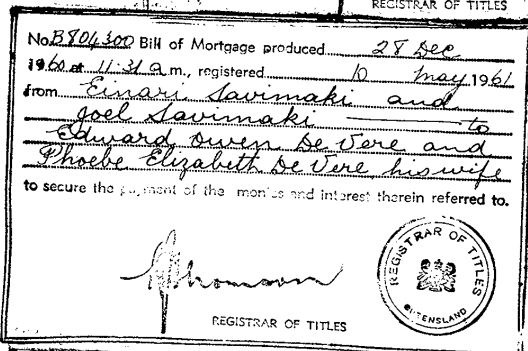 REGISTRAR OF TITLES
No. B804300 Bill of Mortgage produced 28 Dec
1960 at 11.31 a.m., registered 10 May 1961
from Einari Savimaki and
Joel Savimaki to
Edward Owen De Vere and
Phoebe Elizabeth De Vere his wife
to secure the payment of the monies and interest therein referred to.
REGISTRAR OF TITLES
REGISTRAR OF TITLES
QUEENSLAND